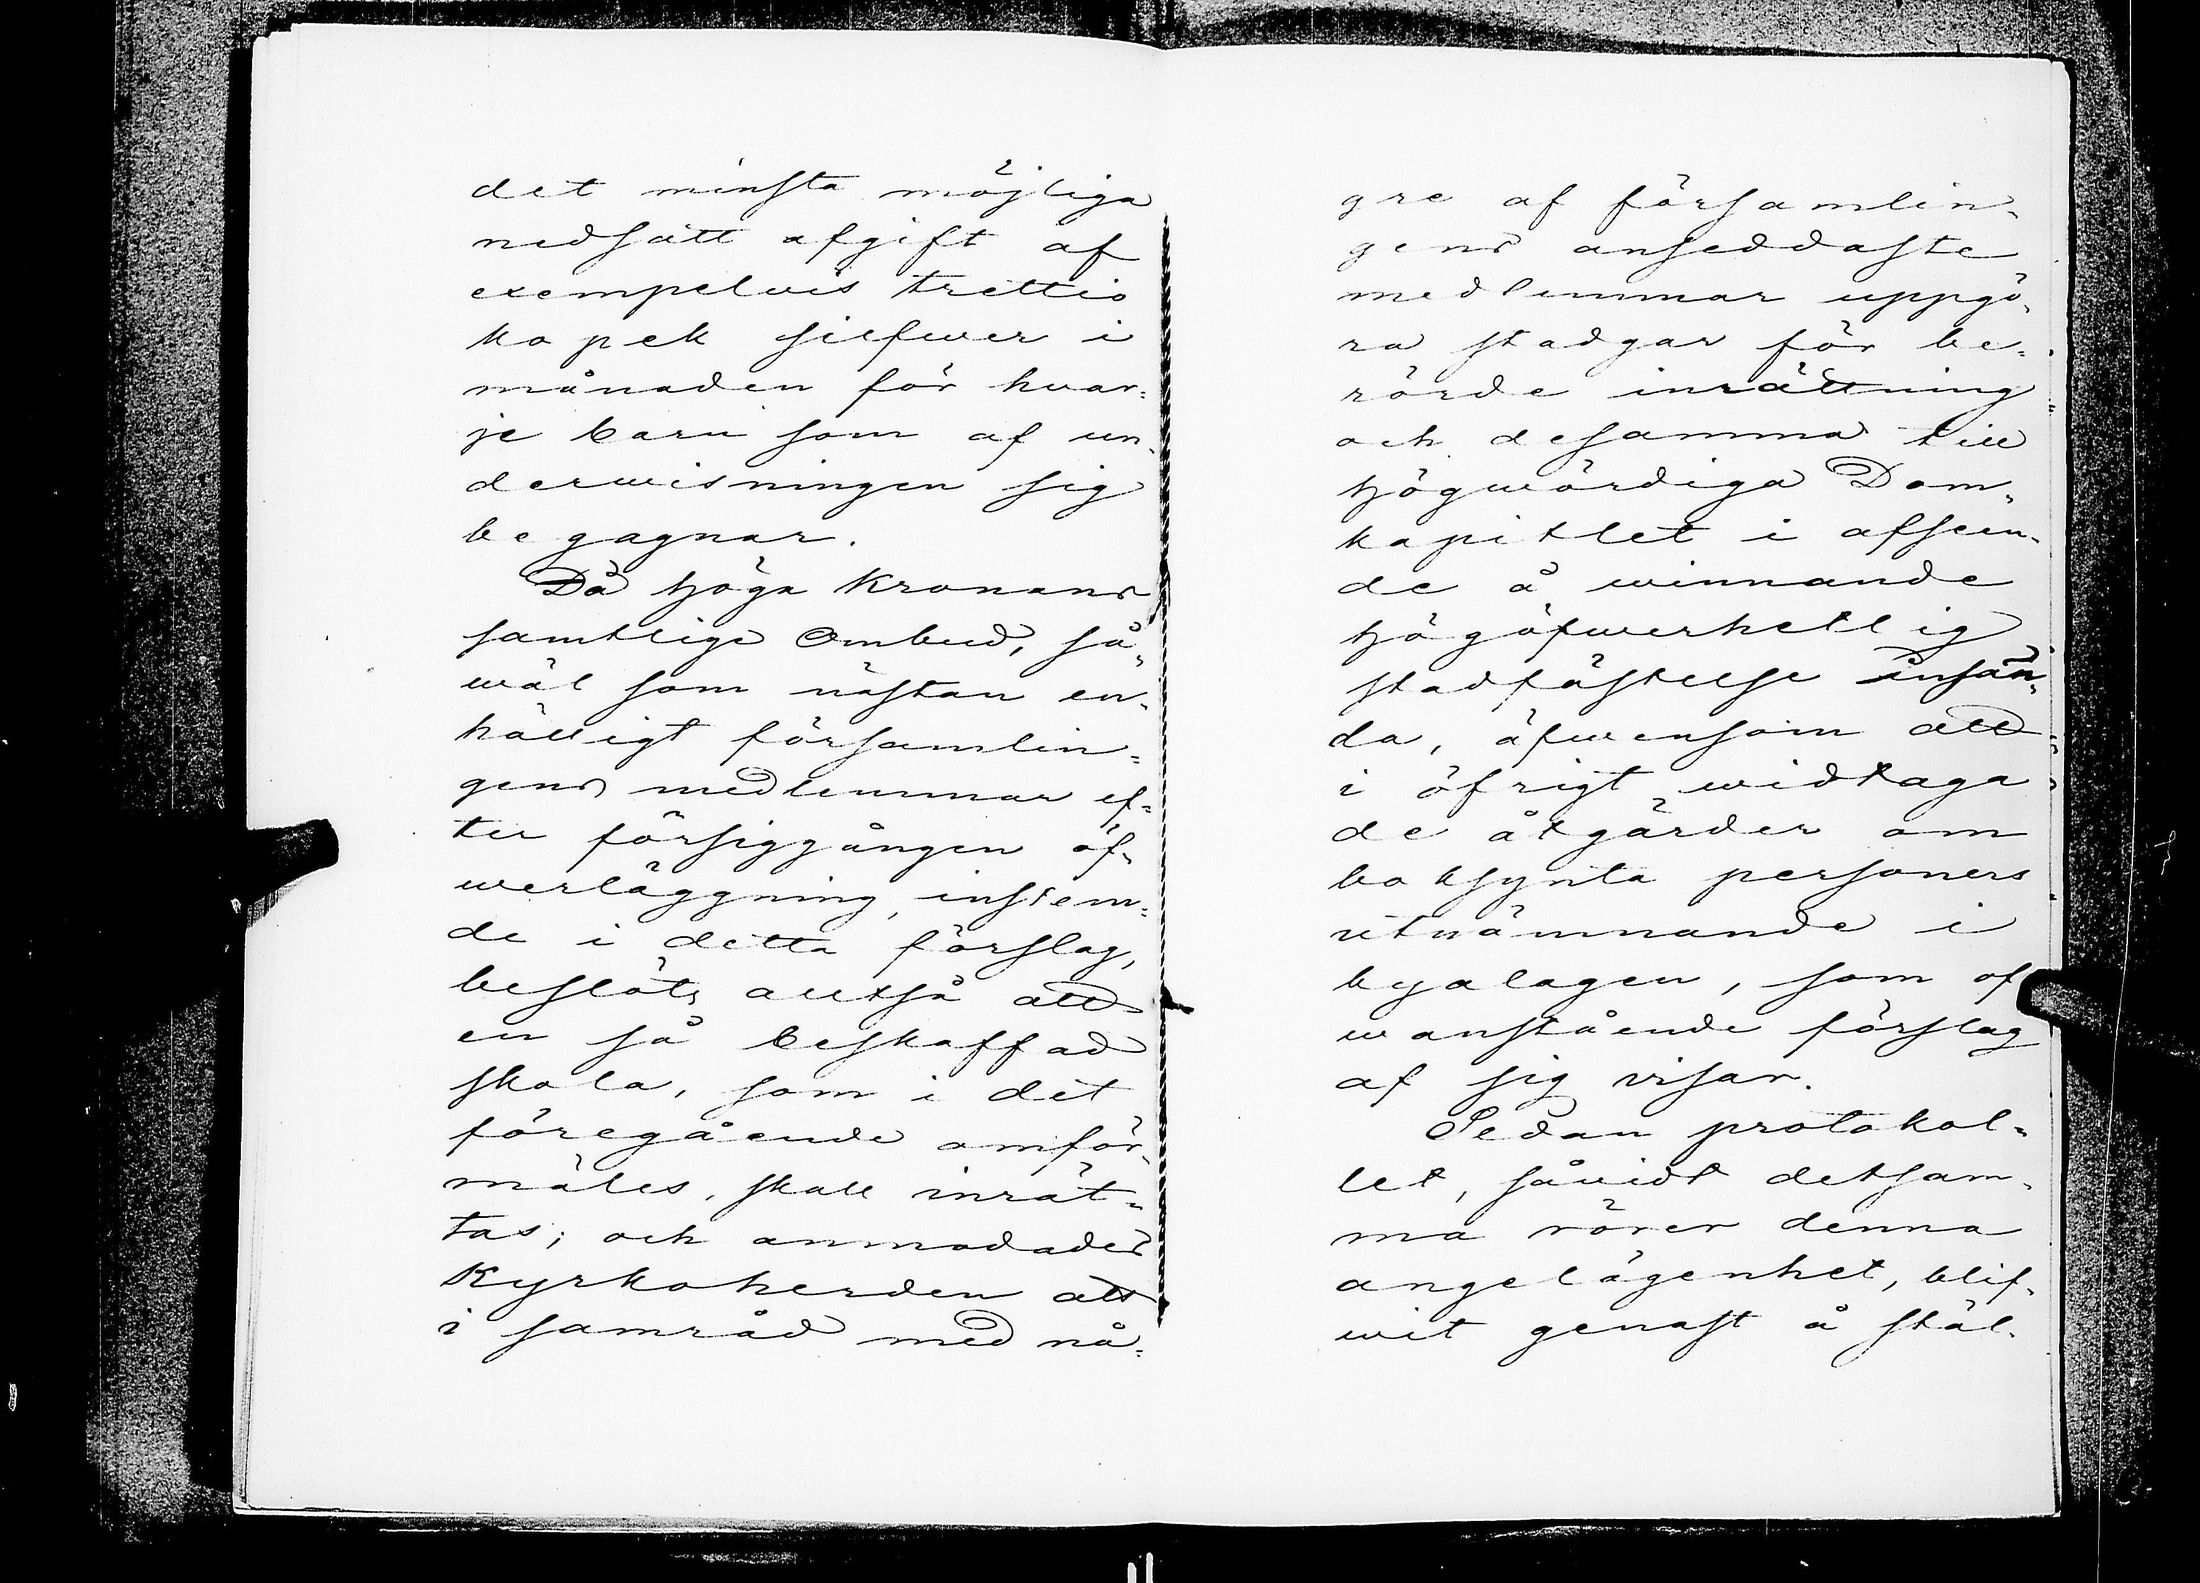 det minsta möjliga
nedsatt afgift af
exempelwis trettio
kopek silfwer i
månaden för hwar=
je barn som af un=
derwisningen sig
begagnar.
Då Höga Kronans
samtlige Ombud, så=
wäl som nästan en=
hälligt församlin=
gens medlemmar ef=
ter försiggången öf=
werläggning, instem=
de i detta förslag,
beslöts alltså att
en så beskaffad
skola, som i det
föregående omför=
mäles, skall inrät=
tas; och anmodades
Kyrkoherden att
i samråd med nå=
gre af församlin=
gens anseddaste
medlemmar uppgö=
ra stadgar för be=
rörde inrättning
och desamma till
Högwördiga Dom=
kapitlet i afseen=
de å winnande
Högöfwerhetlig
stadfästelse insän=
da, äfwensom att
i öfrigt widtaga
de åtgärder om
boksynta personers
utnämnande i
byalagen, som of
wanstående förslag
af sig visar.
Sedan protokol=
let, såvidt detsam=
ma rörer denna
angelägenhet, blif=
wit genast å stäl=